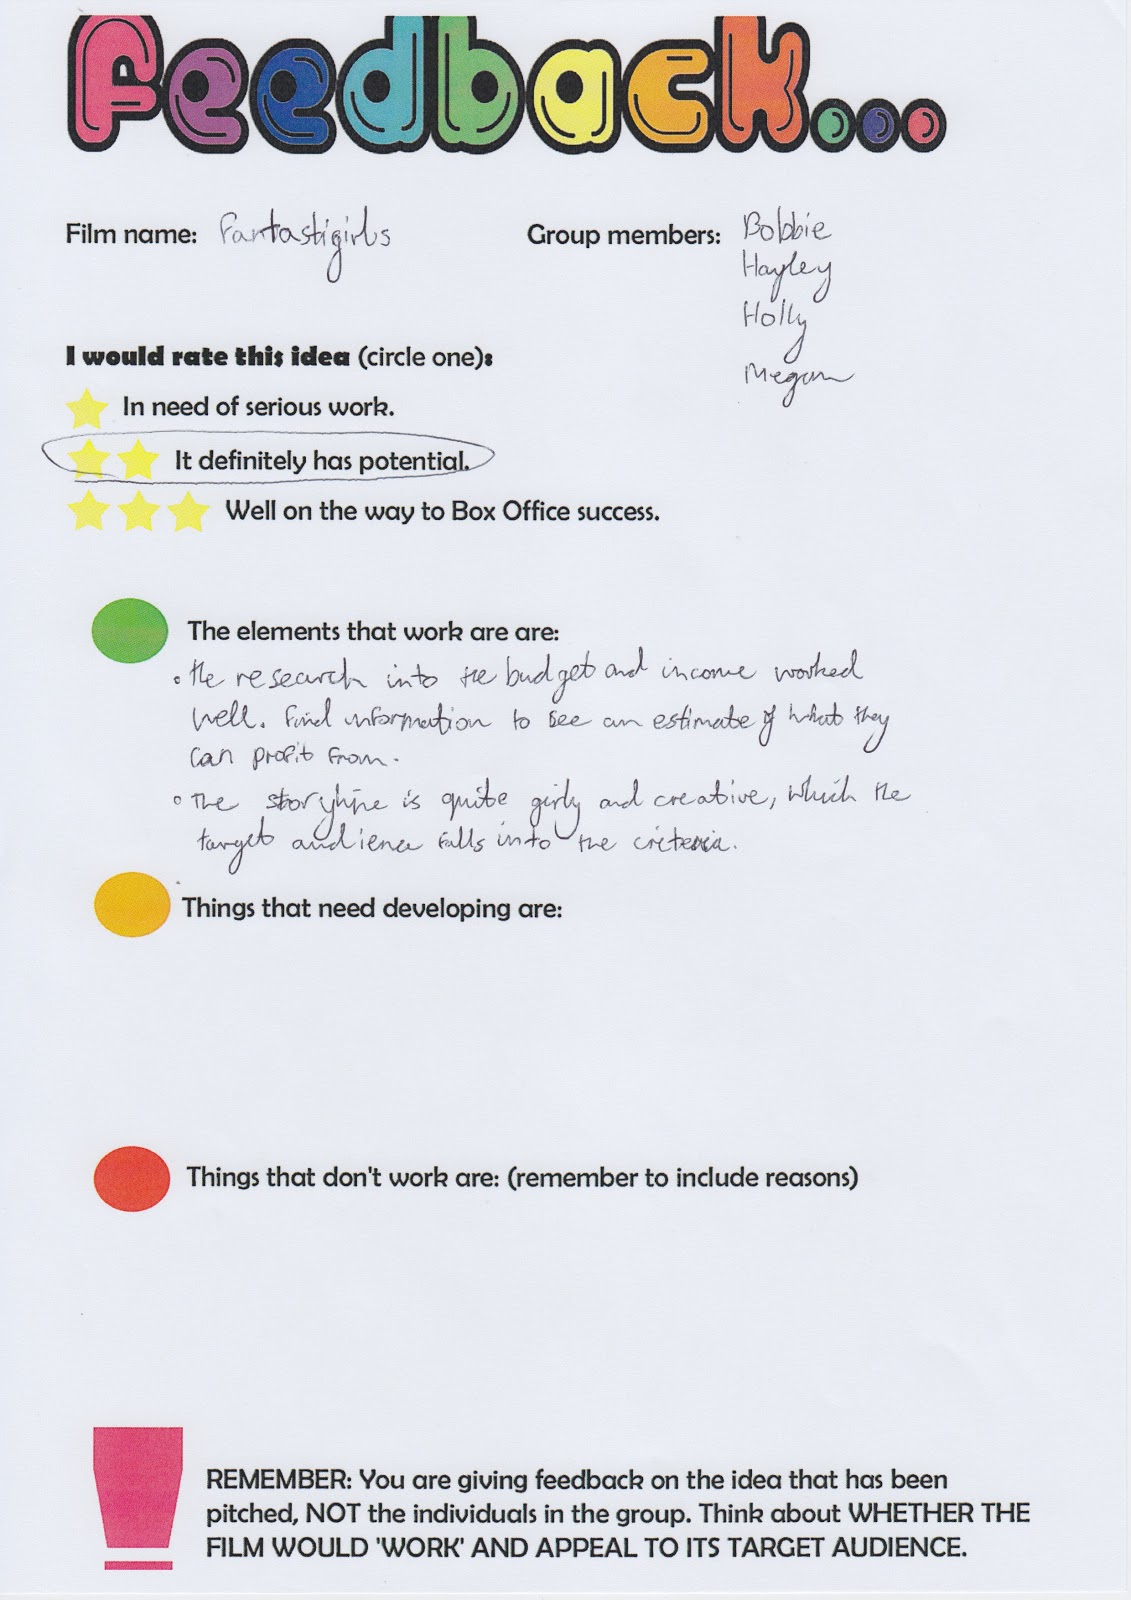 Feedback...
Film name: Fantastigirls
Group members: Bobbie
Hayley
Holly
Megan
I would rate this idea (circle one):
In need of serious work.
It definitely has potential.
Well on the way to Box Office success.
The elements that work are are:
• the research into the budget and income worked
well. Find information to see an estimate of what they
can profit from.
• The storyline is quite girly and creative, which the
target audience falls into the criteria.
Things that need developing are:
Things that don't work are: (remember to include reasons)
REMEMBER: You are giving feedback on the idea that has been
pitched, NOT the individuals in the group. Think about WHETHER THE
FILM WOULD 'WORK' AND APPEAL TO ITS TARGET AUDIENCE.